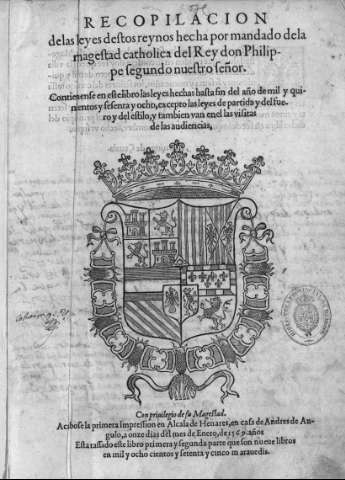 RECOPILACION
de las leyes destos reynos hecha por mandado de la
magestad catholica del Rey don Philip-
pe segundo nuestro señor.
Contienense en este libro las leyes hechas hasta fin del año de mil y qui-
nientos y sesenta y ocho, excepto las leyes de partida y del fue-
ro y del estilo, y tambien van en el las visitas
de las audiencias,
Con privilegio de su Magestad.
Acabose la primera impression en Alcala de Henares, en casa de Andres de An-
gulo, a onze dias del mes de Enero, de 1569. años
Esta tassado este libro primera y segunda parte que son nueve libros
en mil y ocho cientos y setenta y cinco maravedis.